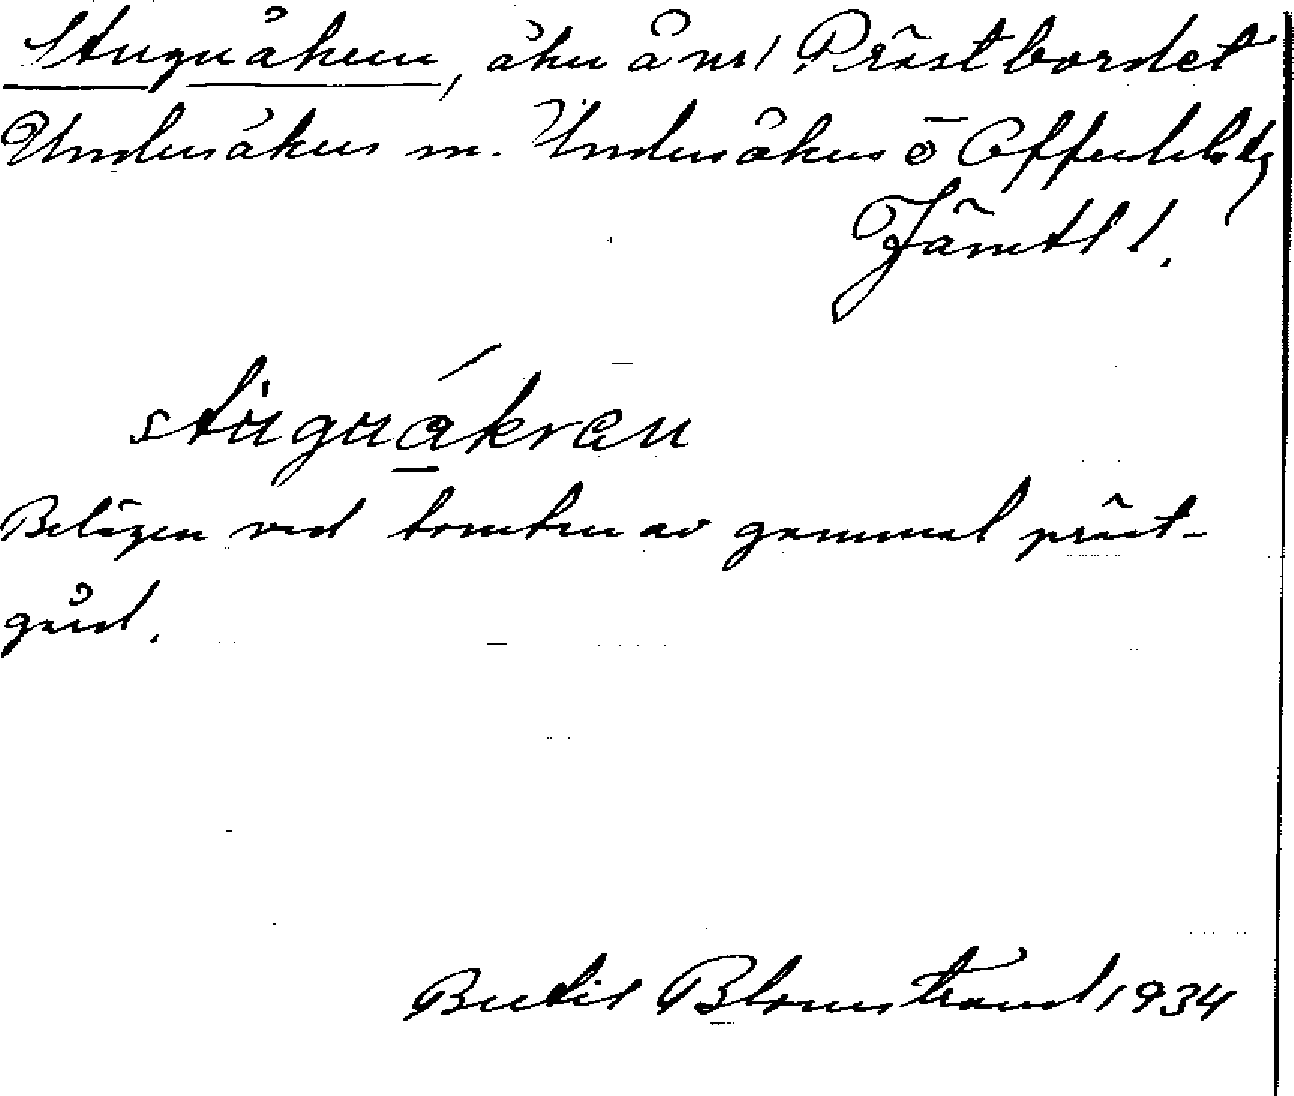 Stuguåkern, åker å nr 1 Prästbordet
Undersåkers sn. Undersåkers o Offerdals tg
Jämtl l.
stuguåkran
Belägen vid tomten av gammal präst-
gård.
Bertil Blomstrand 1934